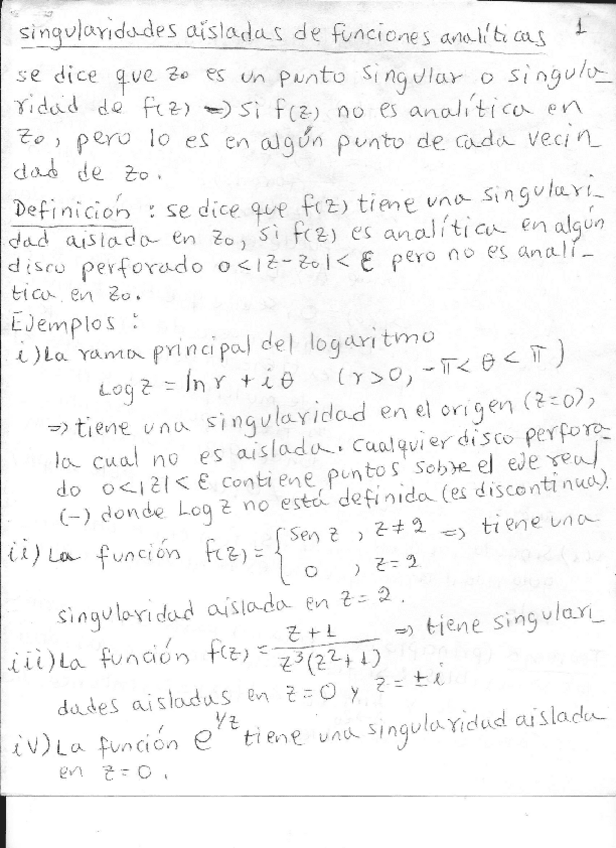 singularidades aisladas de funciones analíticas 1
se dice que z₀ es un punto singular o singula-
ridad de f(z) => si f(z) no es analítica en
z₀, pero lo es en algún punto de cada vecin
dad de z₀.
Definición : se dice que f(z) tiene una singulari-
dad aislada en z₀, si f(z) es analítica en algún
disco perforado 0<|z-z₀|<ε pero no es analí-
tica en z₀.
Ejemplos :
i) La rama principal del logaritmo
Log z = ln r + iθ (r>0, -π<θ<π)
=> tiene una singularidad en el origen (z=0),
la cual no es aislada. Cualquier disco perfora-
do 0<|z|<ε contiene puntos sobre el eje real
(-) donde Log z no está definida (es discontinua).
ii) La función f(z) = { sen z , z≠2 => tiene una
0 , z=2
singularidad aislada en z=2.
iii) La función f(z) = (z+1)/(z³(z²+1)) => tiene singulari-
dades aisladas en z=0 y z=±i
iv) La función e^(1/z) tiene una singularidad aislada
en z=0.